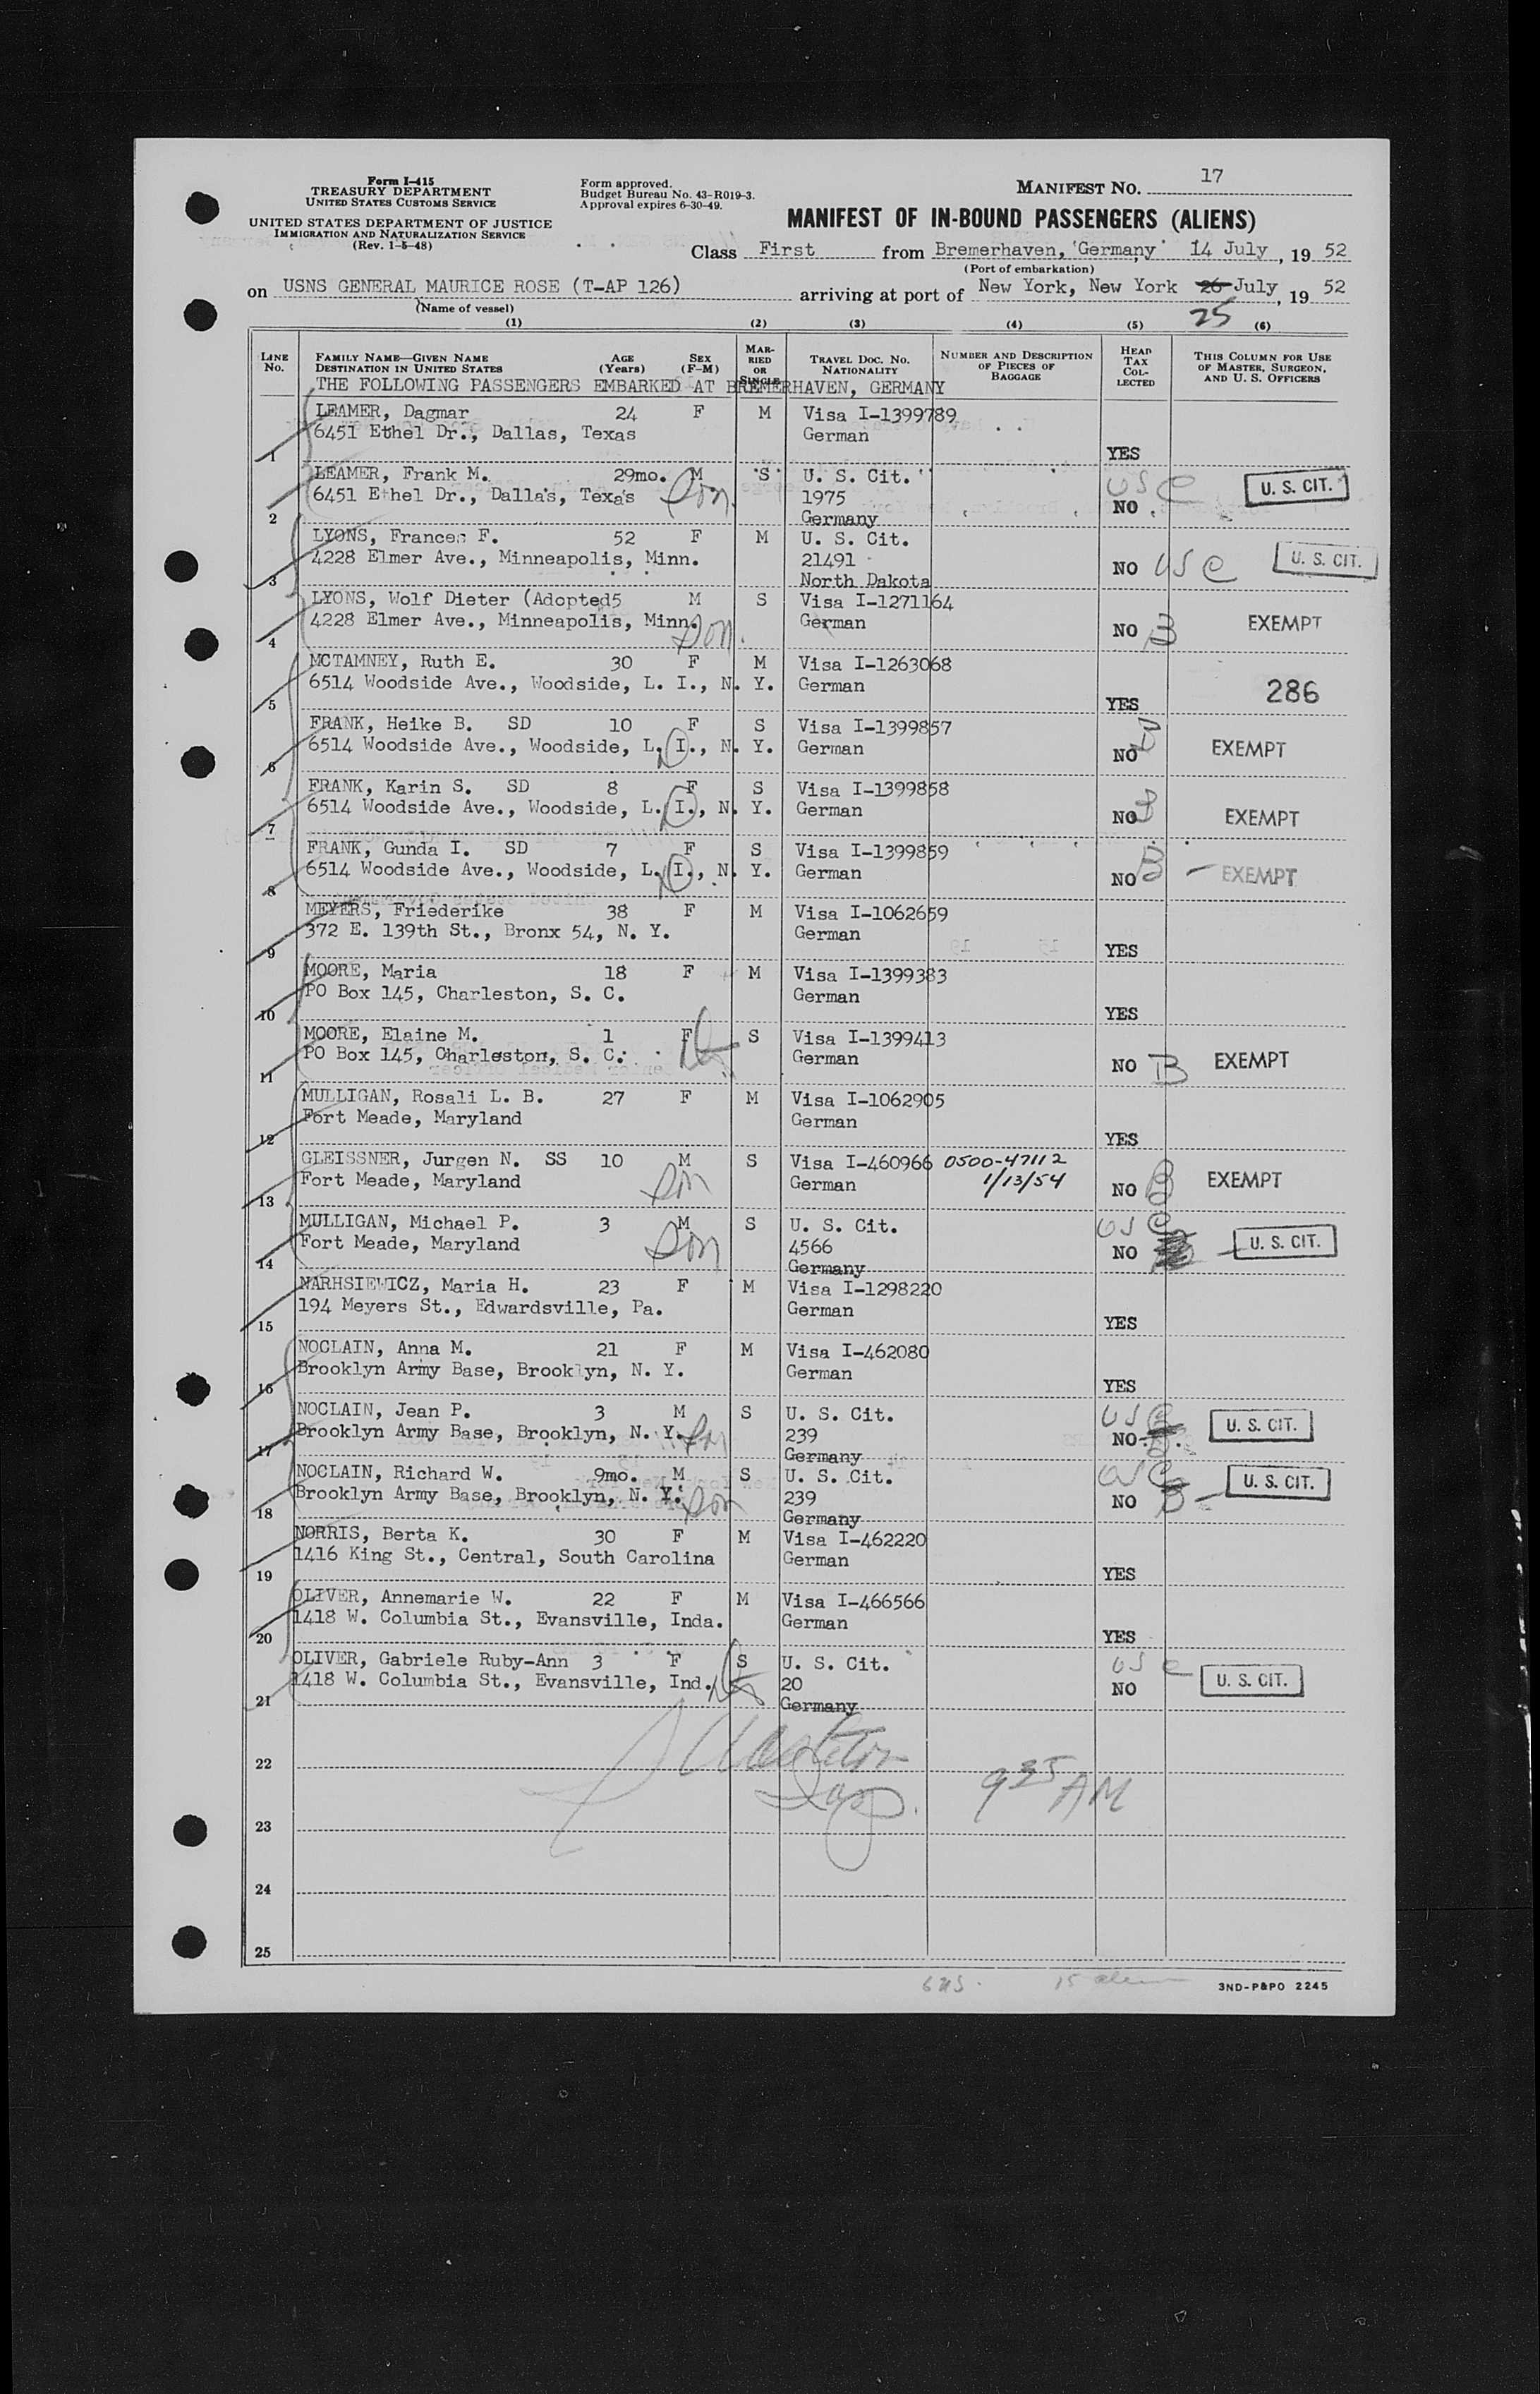 Form I-415
TREASURY DEPARTMENT
UNITED STATES CUSTOMS SERVICE
UNITED STATES DEPARTMENT OF JUSTICE
IMMIGRATION AND NATURALIZATION SERVICE
(Rev. 1-5-48)
Form approved.
Budget Bureau No. 43-R019-3.
Approval expires 6-30-49.
MANIFEST NO. 17
MANIFEST OF IN-BOUND PASSENGERS (ALIENS)
Class First from Bremerhaven, Germany 14 July, 19 52
(Port of embarkation)
on USNS GENERAL MAURICE ROSE (T-AP 126) arriving at port of New York, New York 26 July, 19 52
25
(Name of vessel)
(1) (2) (3) (4) (5) (6)
LINE No. FAMILY NAME—GIVEN NAME DESTINATION IN UNITED STATES AGE (Years) SEX (F-M) MARRIED OR SINGLE TRAVEL DOC. NO. NATIONALITY NUMBER AND DESCRIPTION OF PIECES OF BAGGAGE HEAD TAX COLLECTED THIS COLUMN FOR USE OF MASTER, SURGEON, AND U. S. OFFICERS
THE FOLLOWING PASSENGERS EMBARKED AT BREMERHAVEN, GERMANY
LEAMER, Dagmar 24 F M Visa I-1399789
6451 Ethel Dr., Dallas, Texas German
1 YES
LEAMER, Frank M. 29mo. M S U. S. Cit. USC U. S. CIT.
6451 Ethel Dr., Dallas, Texas Son. 1975
2 Germany NO
LYONS, Frances F. 52 F M U. S. Cit.
4228 Elmer Ave., Minneapolis, Minn. 21491 NO USC U. S. CIT.
3 North Dakota
LYONS, Wolf Dieter (Adopted5 M S Visa I-1271164
4228 Elmer Ave., Minneapolis, Minn. Son. German EXEMPT
4 NO B
MCTAMNEY, Ruth E. 30 F M Visa I-1263068
6514 Woodside Ave., Woodside, L. I., N. Y. German 286
5 YES
FRANK, Heike B. SD 10 F S Visa I-1399857
6514 Woodside Ave., Woodside, L. I., N. Y. German EXEMPT
6 NO B
FRANK, Karin S. SD 8 F S Visa I-1399858
6514 Woodside Ave., Woodside, L. I., N. Y. German EXEMPT
7 NO B
FRANK, Gunda I. SD 7 F S Visa I-1399859
6514 Woodside Ave., Woodside, L. I., N. Y. German EXEMPT
8 NO B
MEYERS, Friederike 38 F M Visa I-1062659
372 E. 139th St., Bronx 54, N. Y. German
9 YES
MOORE, Maria 18 F M Visa I-1399383
PO Box 145, Charleston, S. C. German
10 YES
MOORE, Elaine M. 1 F S Visa I-1399413
PO Box 145, Charleston, S. C. German EXEMPT
11 NO B
MULLIGAN, Rosali L. B. 27 F M Visa I-1062905
Fort Meade, Maryland German
12 YES
GLEISSNER, Jurgen N. SS 10 M S Visa I-460966 0500-47112
Fort Meade, Maryland Son German 1/13/54 EXEMPT
13 NO B
MULLIGAN, Michael P. 3 M S U. S. Cit. USC
Fort Meade, Maryland Son 4566 NO U. S. CIT.
14 Germany
NARHSIEWICZ, Maria H. 23 F M Visa I-1298220
194 Meyers St., Edwardsville, Pa. German
15 YES
NOCLAIN, Anna M. 21 F M Visa I-462080
Brooklyn Army Base, Brooklyn, N. Y. German
16 YES
NOCLAIN, Jean P. 3 M S U. S. Cit. USC U. S. CIT.
Brooklyn Army Base, Brooklyn, N. Y. Son 239 NO
17 Germany
NOCLAIN, Richard W. 9mo. M S U. S. Cit. USC U. S. CIT.
Brooklyn Army Base, Brooklyn, N. Y. Son 239 NO B
18 Germany
NORRIS, Berta K. 30 F M Visa I-462220
1416 King St., Central, South Carolina German
19 YES
OLIVER, Annemarie W. 22 F M Visa I-466566
1418 W. Columbia St., Evansville, Inda. German
20 YES
OLIVER, Gabriele Ruby-Ann 3 F S U. S. Cit. USC U. S. CIT.
1418 W. Columbia St., Evansville, Ind. 20 NO
21 Germany
22
9 35 AM
23
24
25
6 US. 15 alien
3ND-P&PO 2245